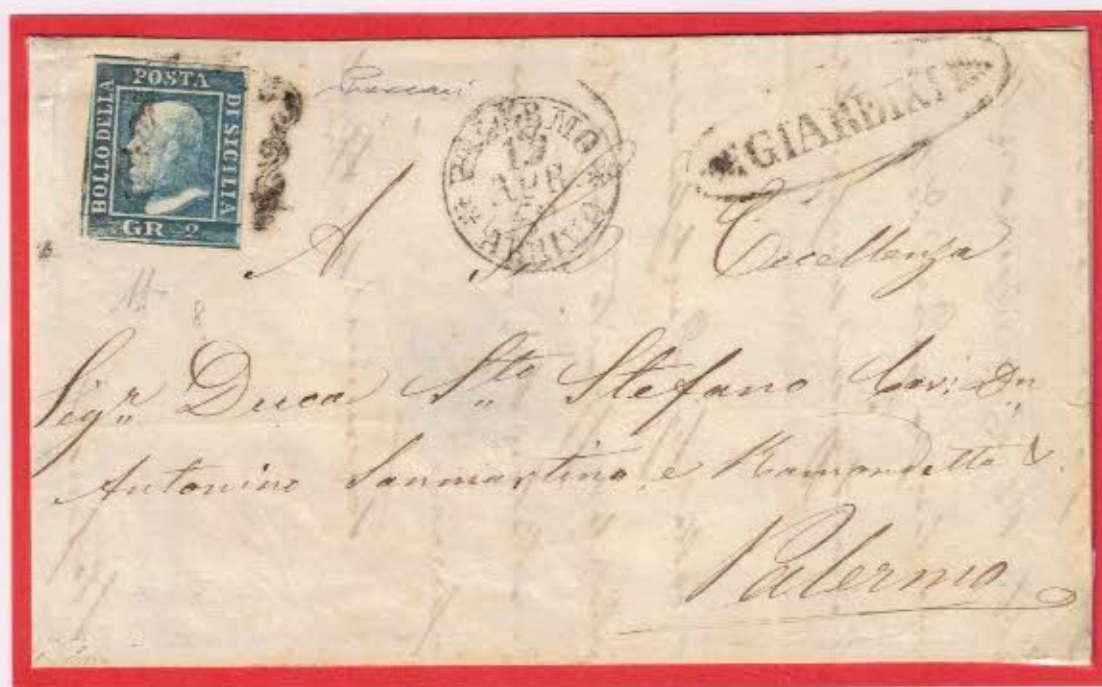 BOLLO DELLA POSTA DI SICILIA
GR 2
PALERMO
19
APR
ARRIVO
GIARDINI
A Sua Eccellenza
Sigr. Duca Sto. Stefano Cav: Dn
Antonino Sanmartino e Ramondetta &.
Palermo